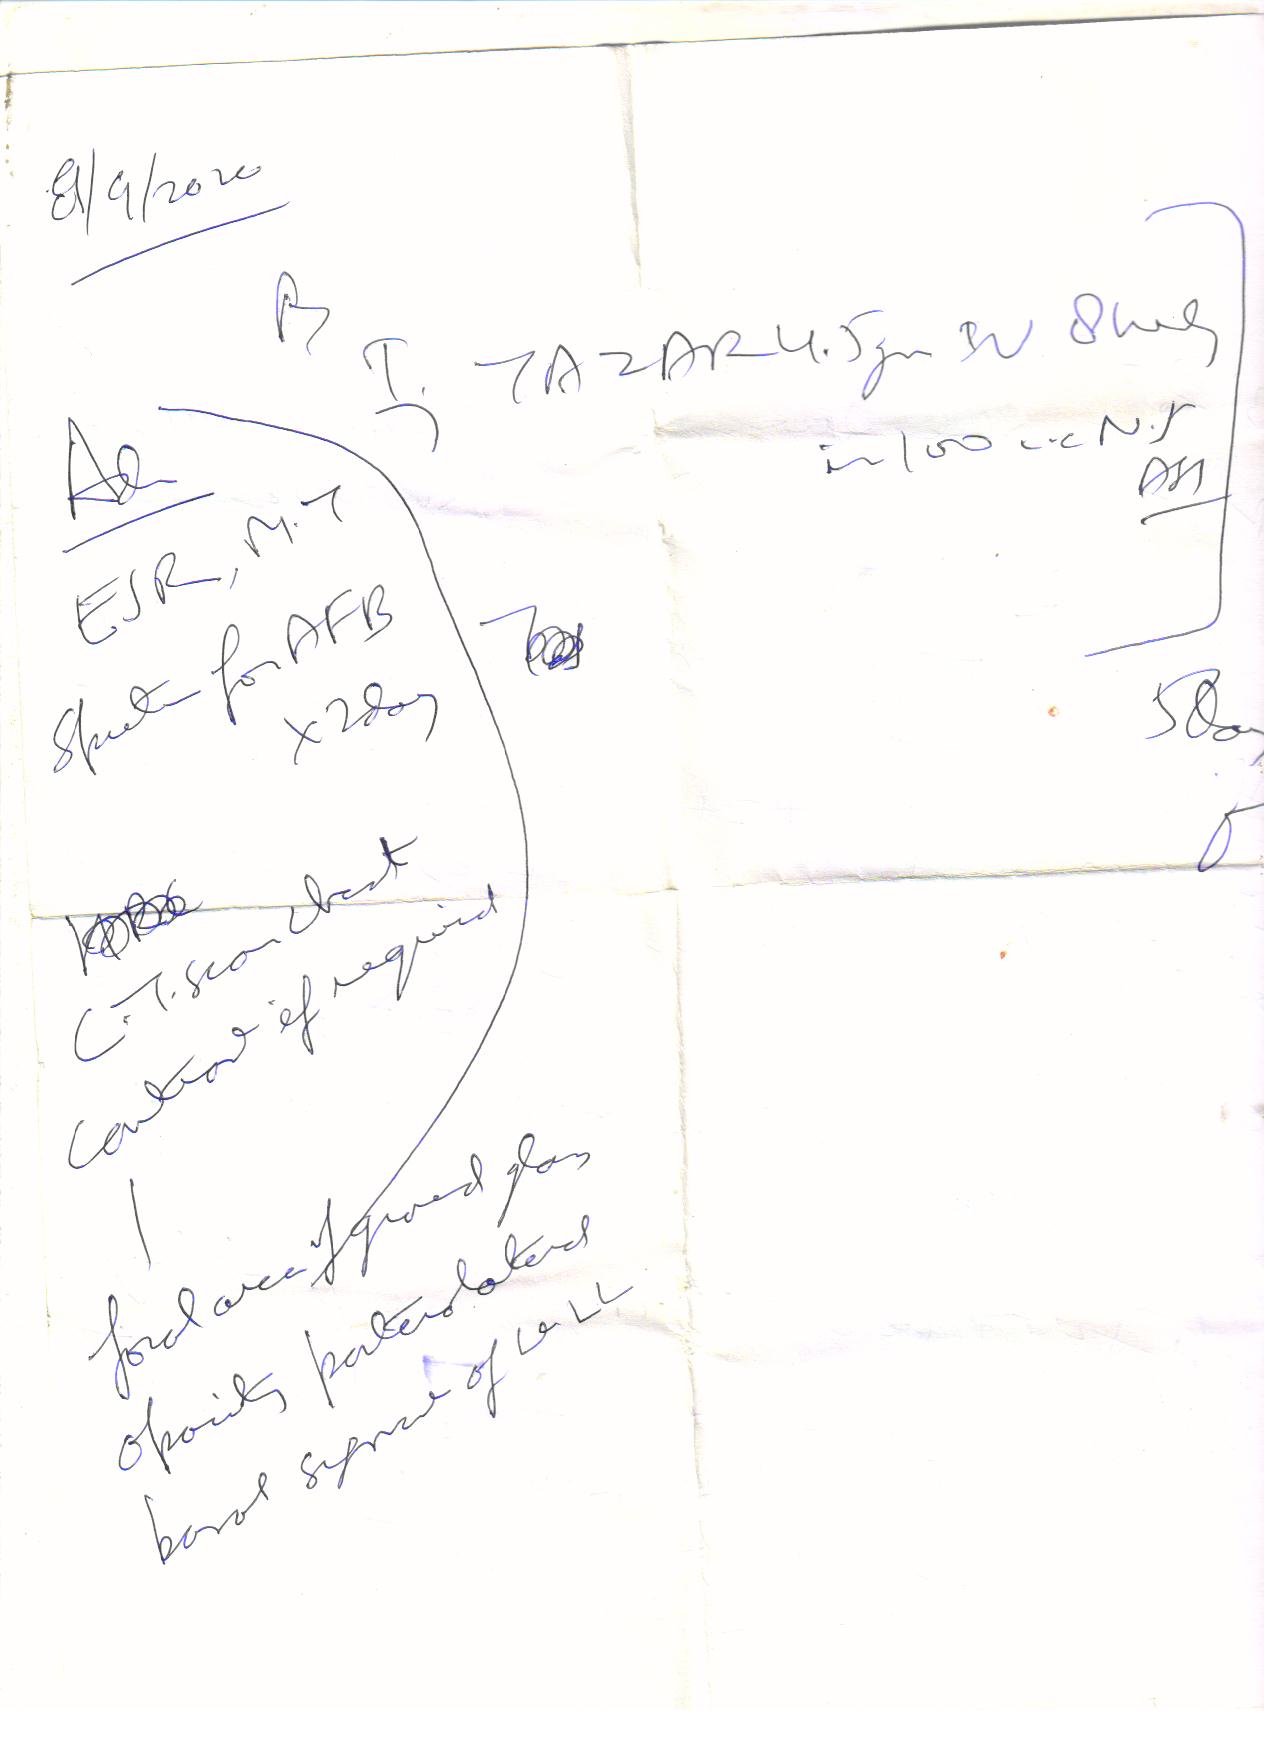 8/9/2020
Rx
I. TAZAR 4.5gm IV 8 hrly
in 100 cc N.S
Adv
ESR, M.T
Sputum for AFB
x 2 day
5 Day
C.T. scan chest
contrast if required
focal area of ground glass
opacity posterolateral
basal segment of